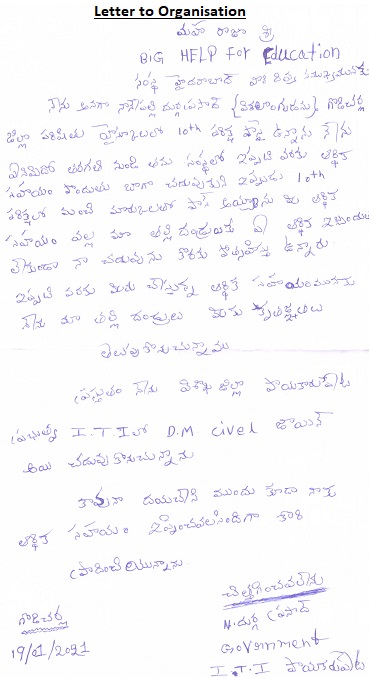 Letter to Organisation
మహా రాజా శ్రీ
BIG HELP For Education
సంస్థ హైదరాబాద్ వారి దివ్య సముఖమునకు
నేను అనగా దుర్గాప్రసాద్ {వికలాంగుడను} గొడిచర్ల
జిల్లా పరిషత్తు హైస్కూలులో 10th పరీక్ష ఉన్నాను నేను
ఎనిమిదో తరగతి నుండి తమ సంస్థలో ఇప్పటి వరకు ఆర్థిక
సహాయం పొందుతు బాగా చదువుకుని ఇప్పుడు 10th
పరీక్షలో మంచి మార్కులతో పాస్ అయ్యాను మీ ఆర్థిక
సహాయం వల్ల మా తల్లి దండ్రులకు ఏ ఆర్థిక ఇబ్బందులు
లేకుండా నా చదువును కొరకు ప్రోత్సహిస్తు ఉన్నారు
ఇప్పటి వరకు మీరు చేస్తున్న ఆర్థిక సహాయంమునకు
నేను మా తల్లి దండ్రులు మీకు కృతజ్ఞతలు
తెలుపుకొనుచున్నాము
ప్రస్తుతం నేను విశాఖ జిల్లా పాయకరావుపేట
ప్రభుత్వ I.T.I లో D.M civel జాయిన్
అయి చదువుకొనుచున్నాను
కావున దయచేసి ముందు కూడా నాకు
ఆర్థిక సహాయం ఇప్పించవలసిందిగా కోరి
ప్రార్దించియున్నాను
చిత్తగించవలెను
N.దుర్గ ప్రసాద్
Government
I.T.I పాయకరావుపేట
గొడిచర్ల
19/01/2021